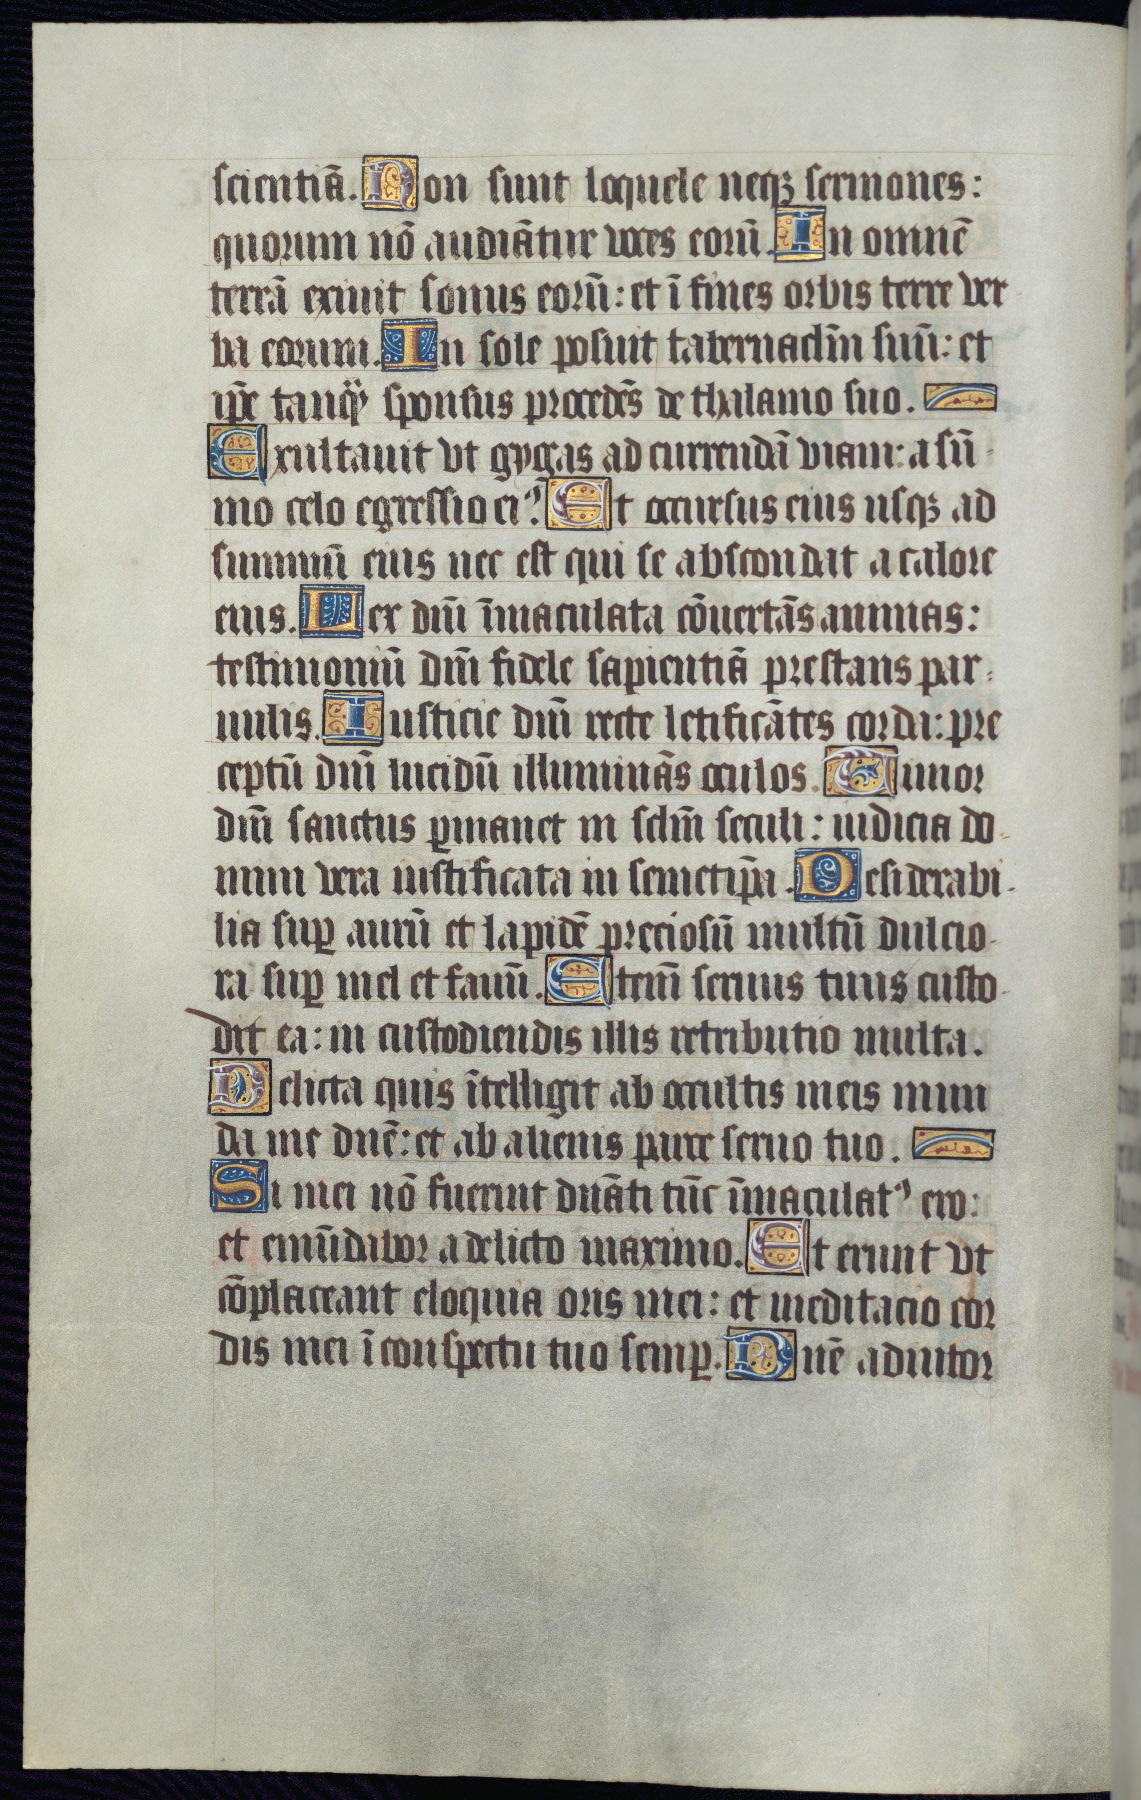 scientiā. Non sunt loquele neqꝫ sermones:
quorum nō audiātur voces eorū. In omnē
terrā exiuit sonus eorū: et ī fines orbis terre ver
ba eorum. In sole posuit tabernaclm̄ suū: et
ip̄e tanqᷓ sponsus procedēs de thalamo suo.
Exultauit vt gygas ad currendā viam: a sū
mo celo egressio eiꝰ. Et occursus eius usqꝫ ad
summū eius nec est qui se abscondat a calore
eius. Lex dn̄i īmaculata cōuertās animas:
testimoniū dn̄i fidele sapientiā prestans par
uulis. Iusticie dn̄i recte letificātes corda: pre
ceptū dn̄i lucidū illuminās oculos. Timor
dn̄i sanctus ꝑmanet in sclm̄ seculi: iudicia do
mini vera iustificata in semetip̄a. Desiderabi
lia suꝑ aurū et lapidē preciosū multū dulcio
ra suꝑ mel et fauū. Etem̄ seruus tuus custo
dit ea: in custodiendis illis retributio multa.
Delicta quis ītelligit ab occultis meis mun
da me dn̄e: et ab alienis parce seruo tuo.
Si mei nō fuerint dn̄ati tūc īmaculatꝰ ero:
et emūdabor a delicto maximo. Et erunt vt
cōplaceant eloquia oris mei: et meditacio cor
dis mei ī conspectu tuo semꝑ. Dn̄e adiutor